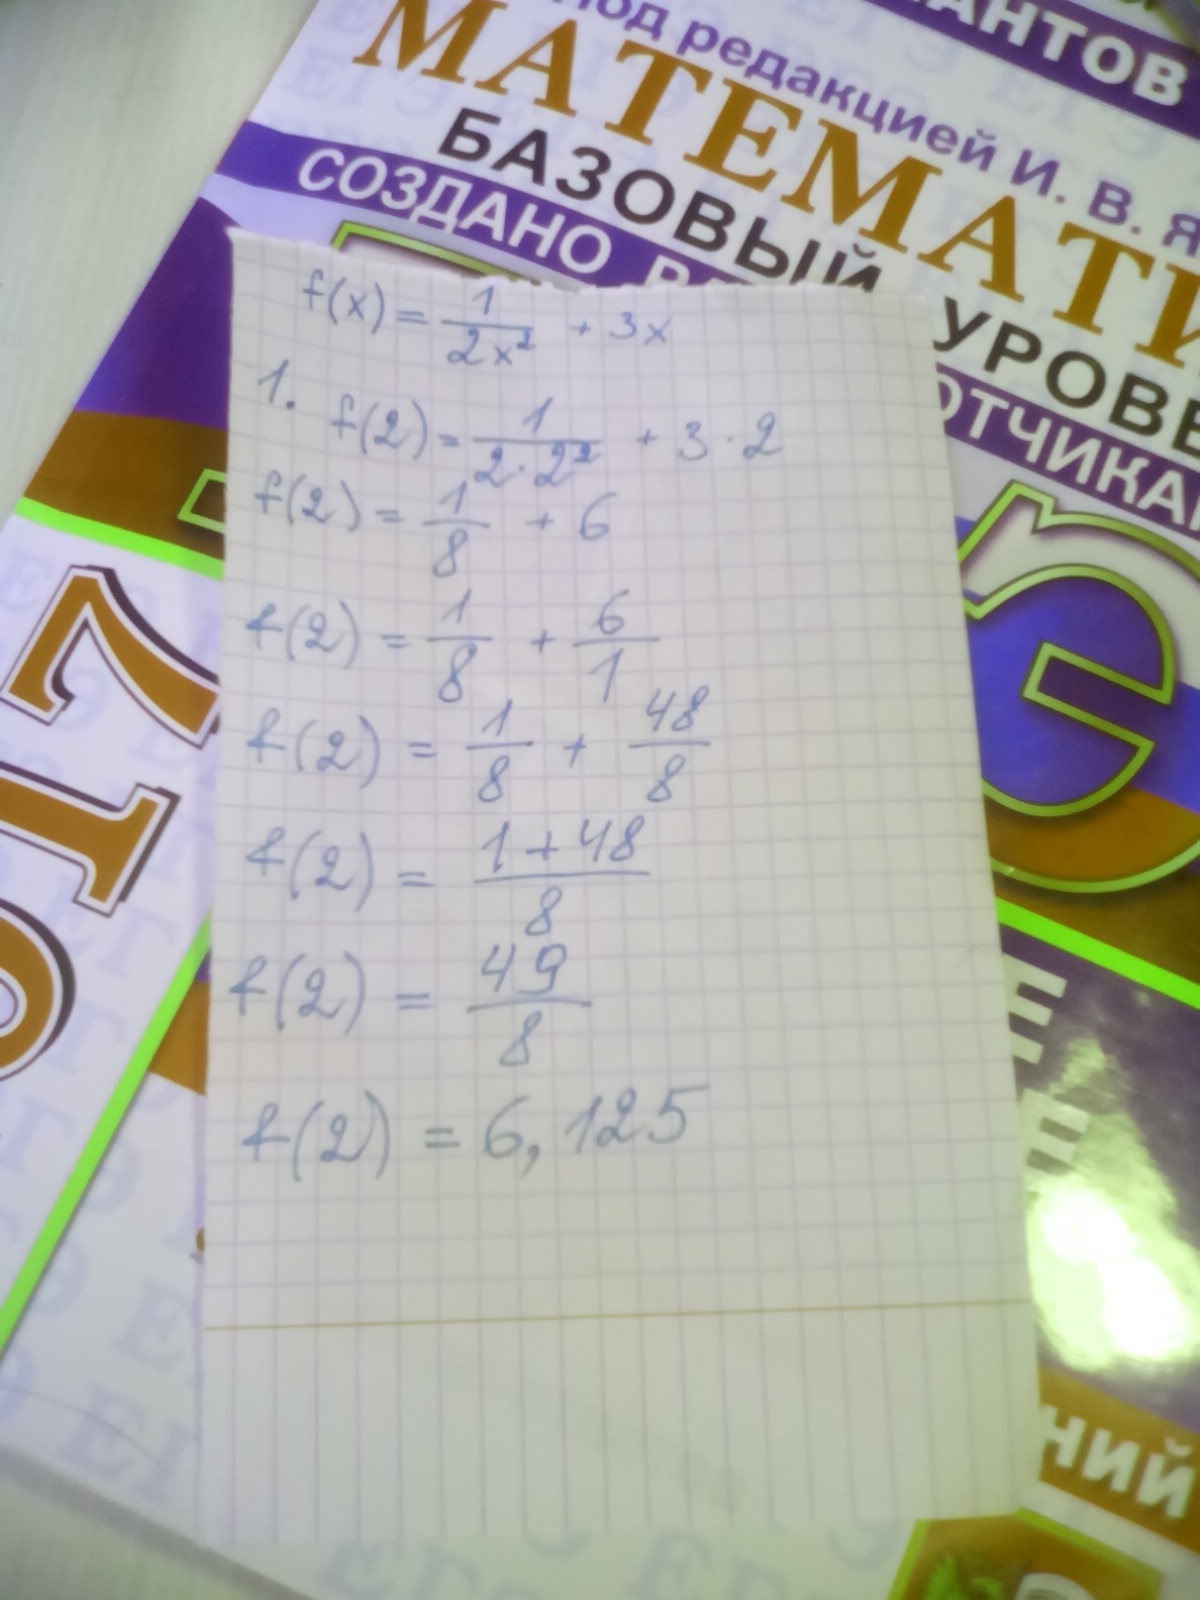 АНТОВ
под редакцией И. В. Я
МАТЕМАТИ
БАЗОВЫЙ УРОВЕ
СОЗДАНО РАЗ ОТЧИКА
f(x) = 1/(2x²) + 3x
1. f(2) = 1/(2·2²) + 3·2
f(2) = 1/8 + 6
f(2) = 1/8 + 6/1
f(2) = 1/8 + 48/8
f(2) = (1+48)/8
f(2) = 49/8
f(2) = 6,125
017
Е
Е
НИЙ